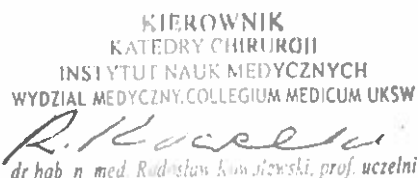 KIEROWNIK
KATEDRY CHIRURGII
INSTYTUT NAUK MEDYCZNYCH
WYDZIAŁ MEDYCZNY.COLLEGIUM MEDICUM UKSW
R. Kowalewski
dr hab. n. med. Radosław Kowalewski, prof. uczelni